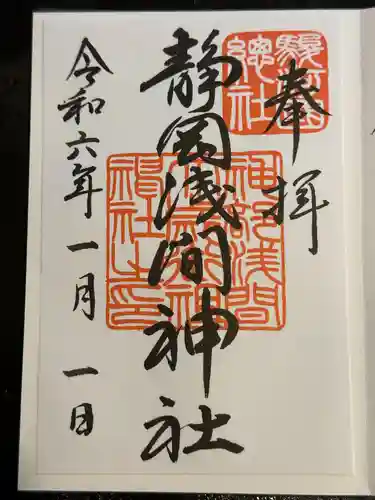 奉拝
駿河國
總社
静岡浅間神社
神部浅間
令和六年一月一日